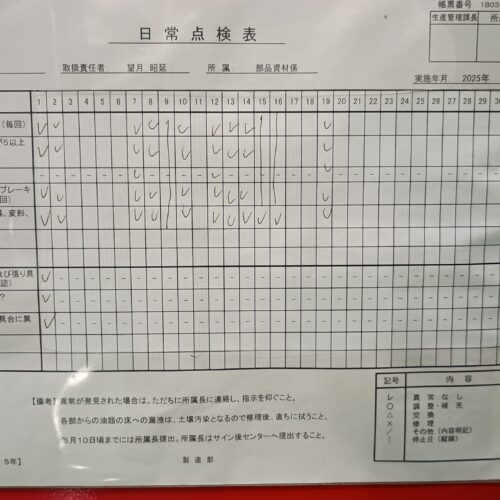 帳票番号 1B03
日常点検表
生産管理課長 所
取扱責任者: 望月 昭延 所属: 部品資材係
実施年月 2025年
1 2 3 4 5 6 7 8 9 10 11 12 13 14 15 16 17 18 19 20 21 22 23 24 25 26 27 28 29 30
(毎回) ✓ ✓ ✓ ✓ ✓ ✓ ✓ ✓ ✓
が5以上 ✓ ✓ ✓ ✓ ✓ ✓ ✓ ✓ ✓
ブレーキ
回) ✓ ✓ ✓ ✓ ✓ ✓ ✓ ✓ ✓
、変形、 ✓ ✓ ✓ ✓ ✓ ✓ ✓ ✓ ✓ ✓ ✓
及び張り具
認) ✓
? ✓
具合に異 ✓
記号 内容
レ 異常なし
○ 調整・補充
△ 交換
× 修理
／ その他(内容明記)
｜ 停止日(縦線)
【備考】異常が発見された場合は、ただちに所属長に連絡し、指示を仰ぐこと。
各部からの油類の床への漏洩は、土壌汚染となるので修理後、直ちに拭うこと。
月10日頃までには所属長提出。所属長はサイン後センターへ提出すること。
5年】
製造部